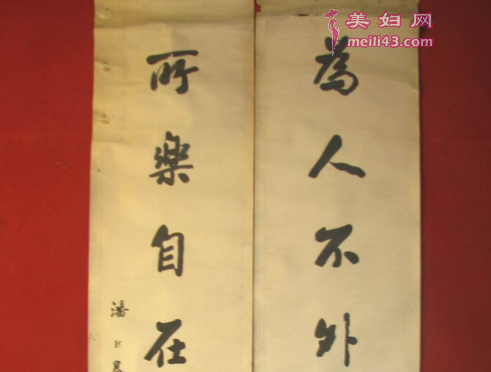 为人不外
所樂自在
潘
美妇网
meili43.com